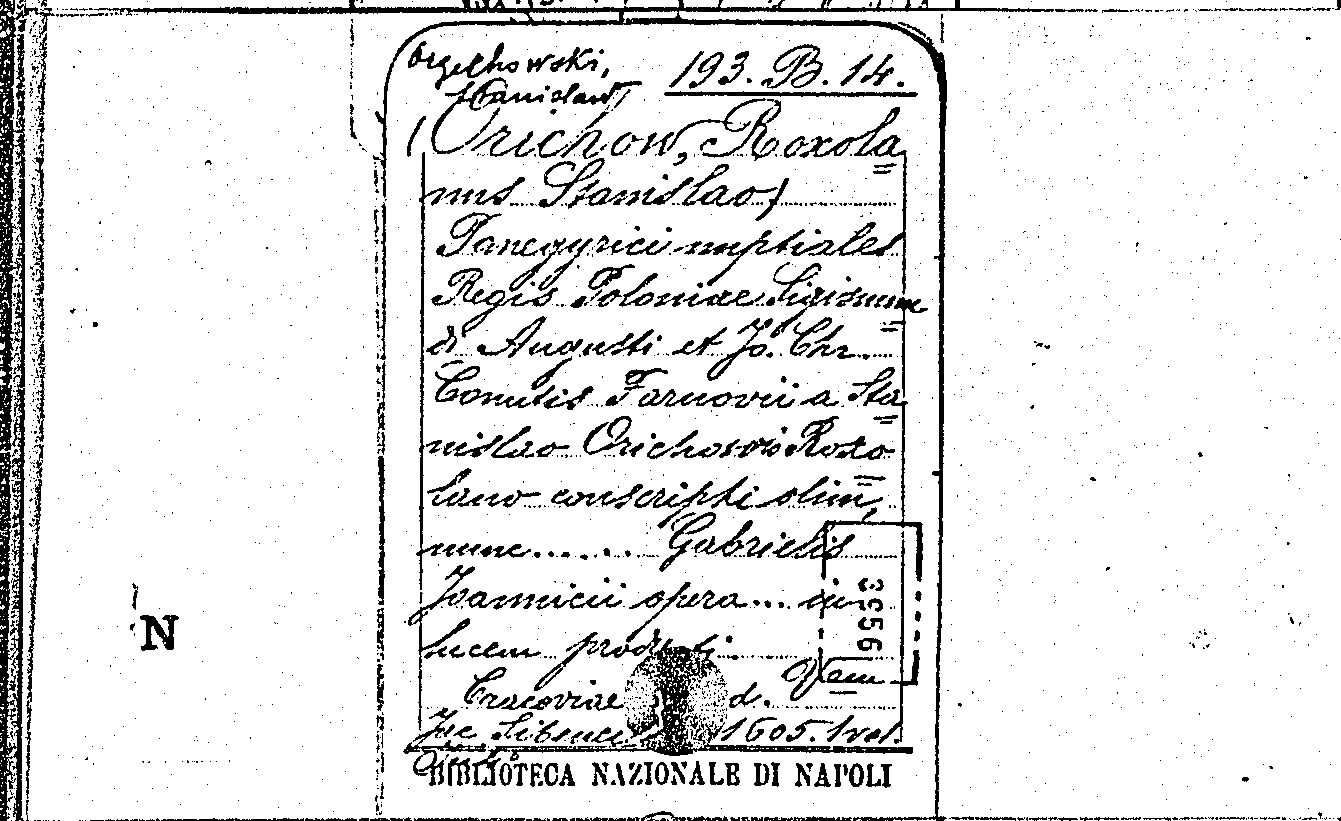 Orzechowski,
Stanisław
193. B. 14.
(Orichow, Roxola
nus Stanislao)
Panegyrici nuptiales
Regis Poloniae Sigismun
di Augusti et Jo. Chr.
Comitis Tarnovii a Sta
nislao Orichovio Roxo
lano conscripti olim,
nunc...... Gabrielis
Joannicii opera... in
lucem
3556
Cracoviae d.
1605. 1 vol.
BIBLIOTECA NAZIONALE DI NAPOLI
N